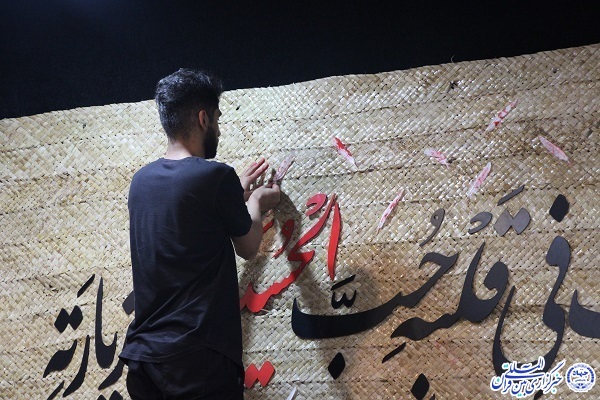 في قَلبِه حُبَّ الحُسَین زِیارَتِه
خبرگزاری بین‌المللی قرآن